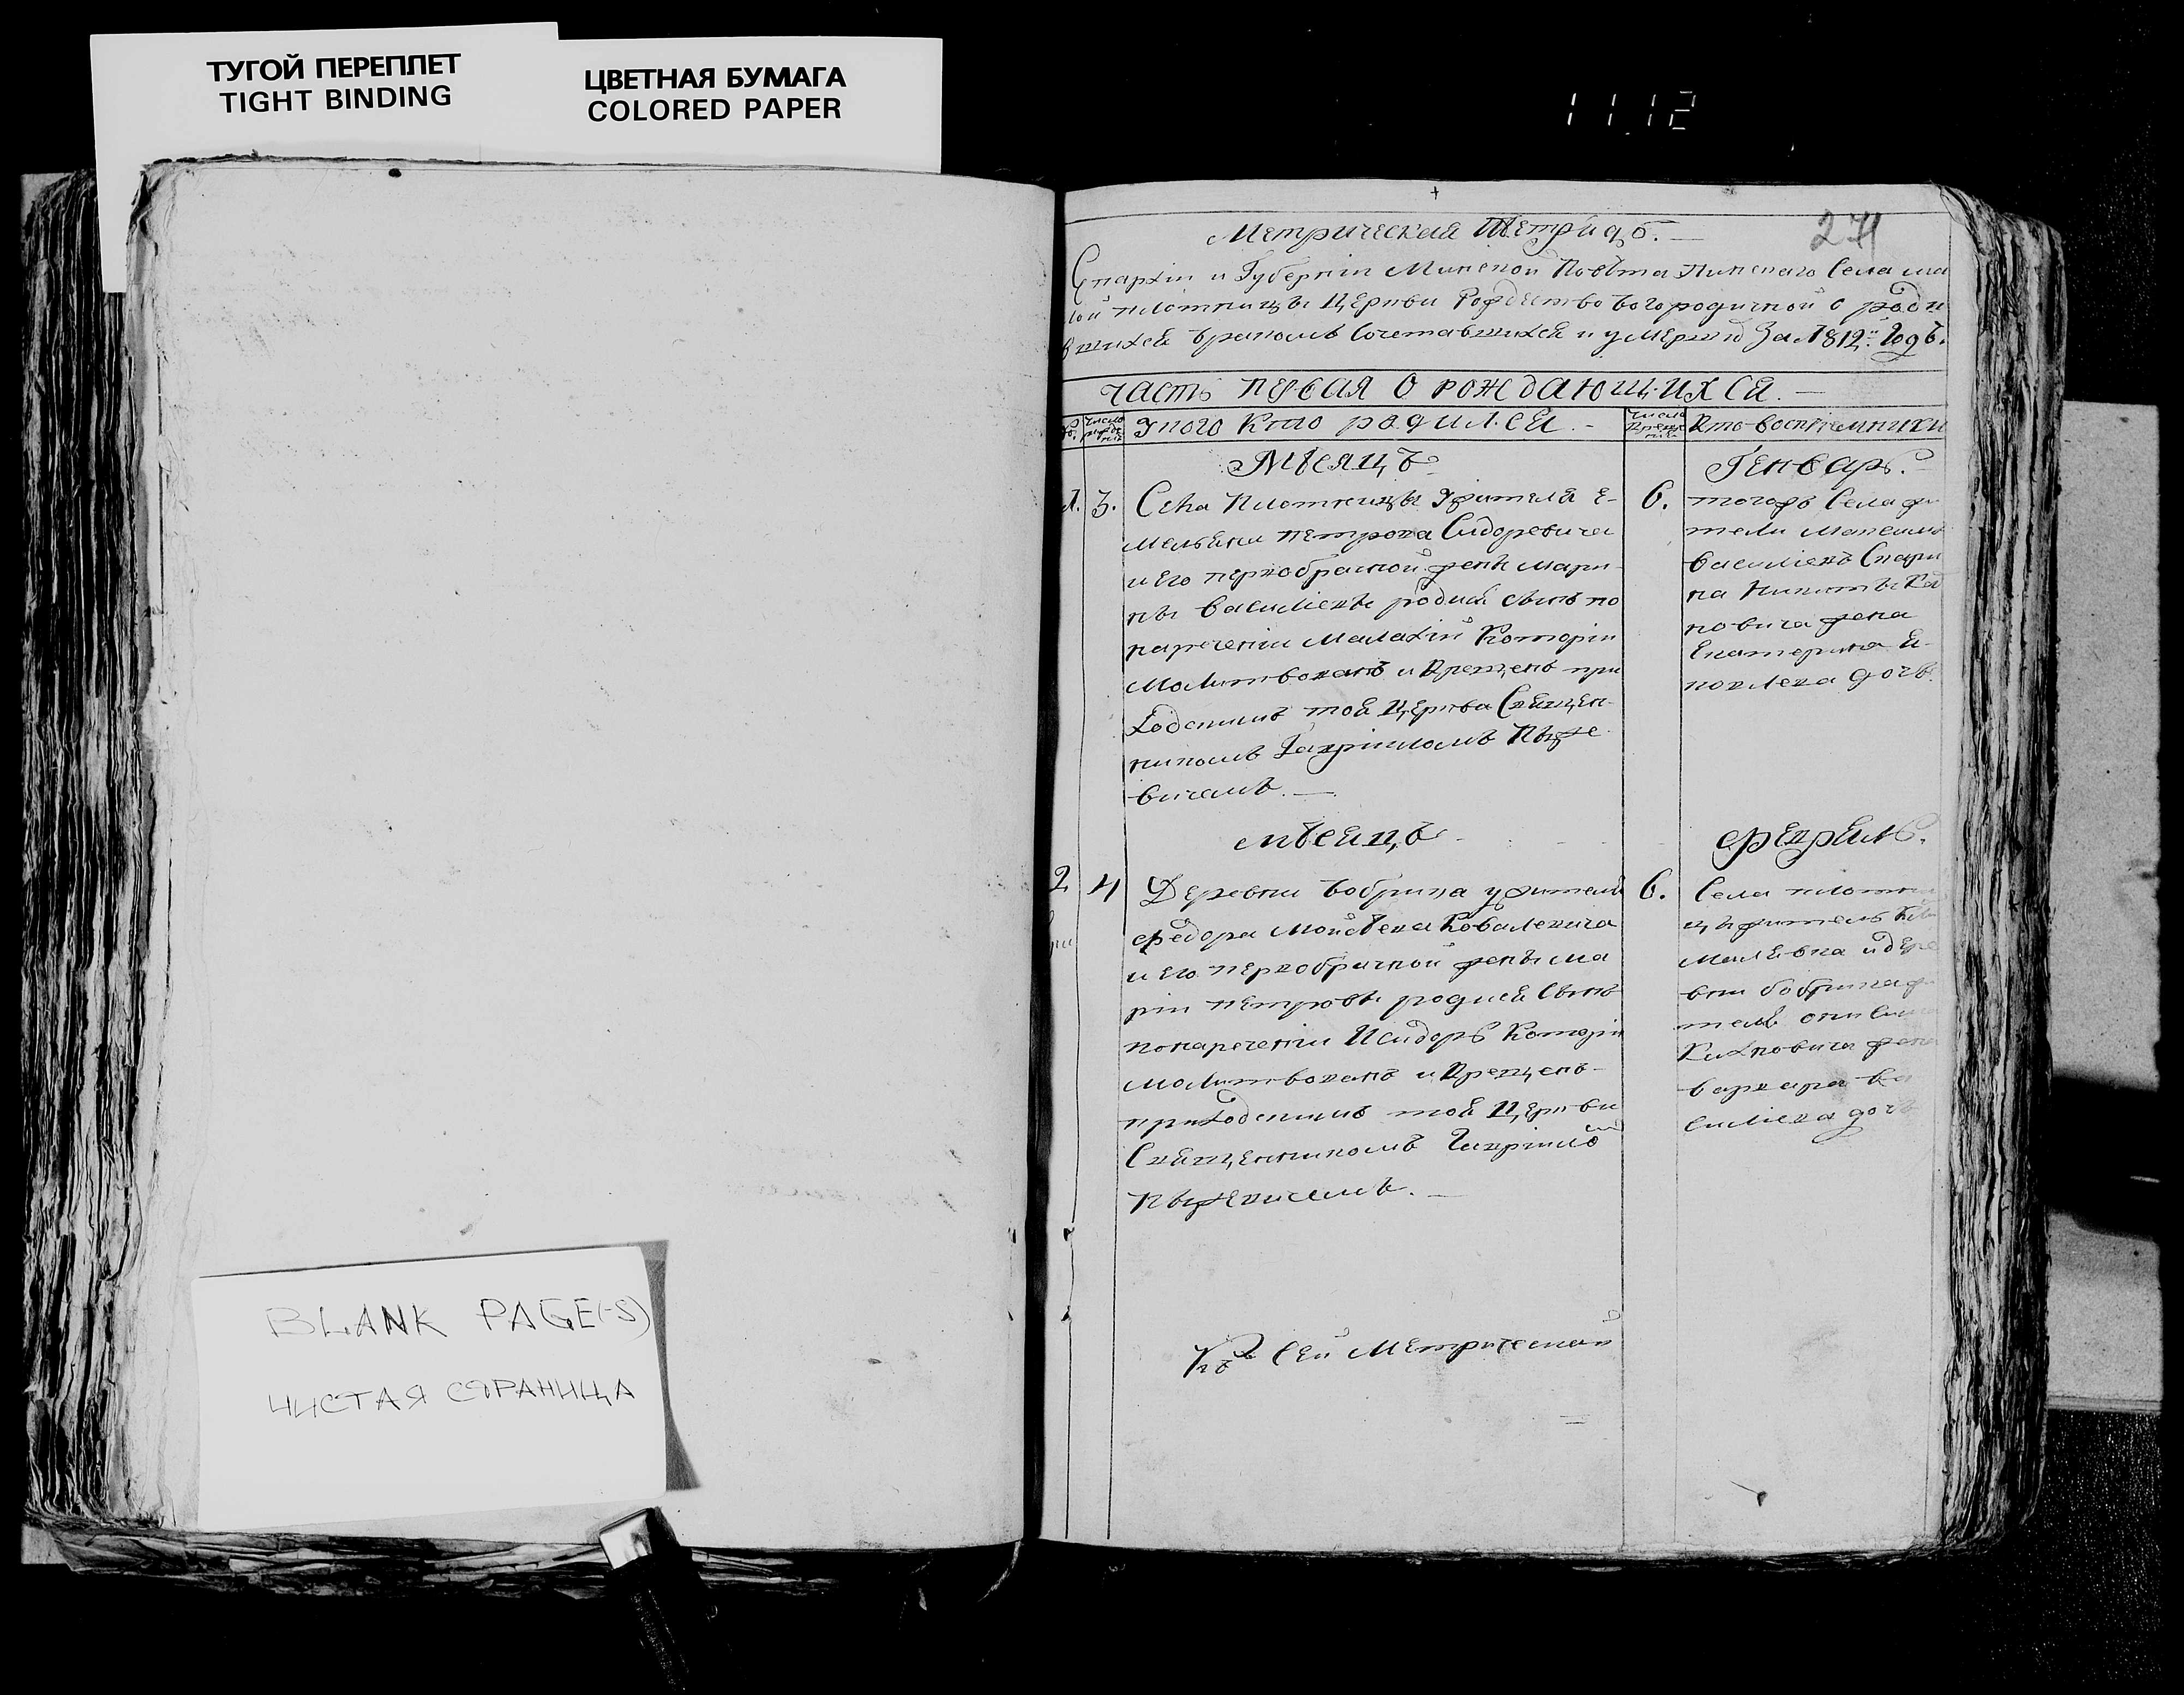 ТУГОЙ ПЕРЕПЛЕТ
TIGHT BINDING
ЦВЕТНАЯ БУМАГА
COLORED PAPER
11.12
271
Метрическая Тетрадь.
Епархіи и Губерніи Минской Повѣта Пинскаго Села ма
лой плотницы Церкви Рождество Богородичной о роди
вшихся бракомъ Сочетавшихся и умершихъ За 1812: Годъ.
часть первая о рождающихся.
число рожде нія
У кого Кто родился.
число Креще нія
Кто воспріемники
Мѣсяцъ
Генварь.
1. 3. Села Плотницы Жителя Е-
мельяна Петрова Сидоревича
и его первобрачной жены мари-
ны василіевы родися сынъ по
наречении Малахій Которій
Молитвованъ и Крещенъ при
ходскимъ той Церкви Священ-
никомъ Гавріиломъ
вичемъ.
6. тогожъ Села жи
тели Максимъ
василіевъ
на
новича жена
Екатерина Я-
ковлева дочь.
мѣсяцъ
февраль.
2 4 Деревни бобрика у жителя
федора Мойсѣева Ковалевича
и его первобрачной жены ма
ріи петровы родися Сынъ
понаречении Исидоръ Которій
Молитвованъ и Крещенъ
приходскимъ той Церкви
Священникомъ Гавріиломъ
6. Села плотни
цы житель
и дере
вни бобрика жи
тель
жена
варвара ва
силіева дочь
Къ Сей Метрической
BLANK PAGE(-S)
ЧИСТАЯ СТРАНИЦА